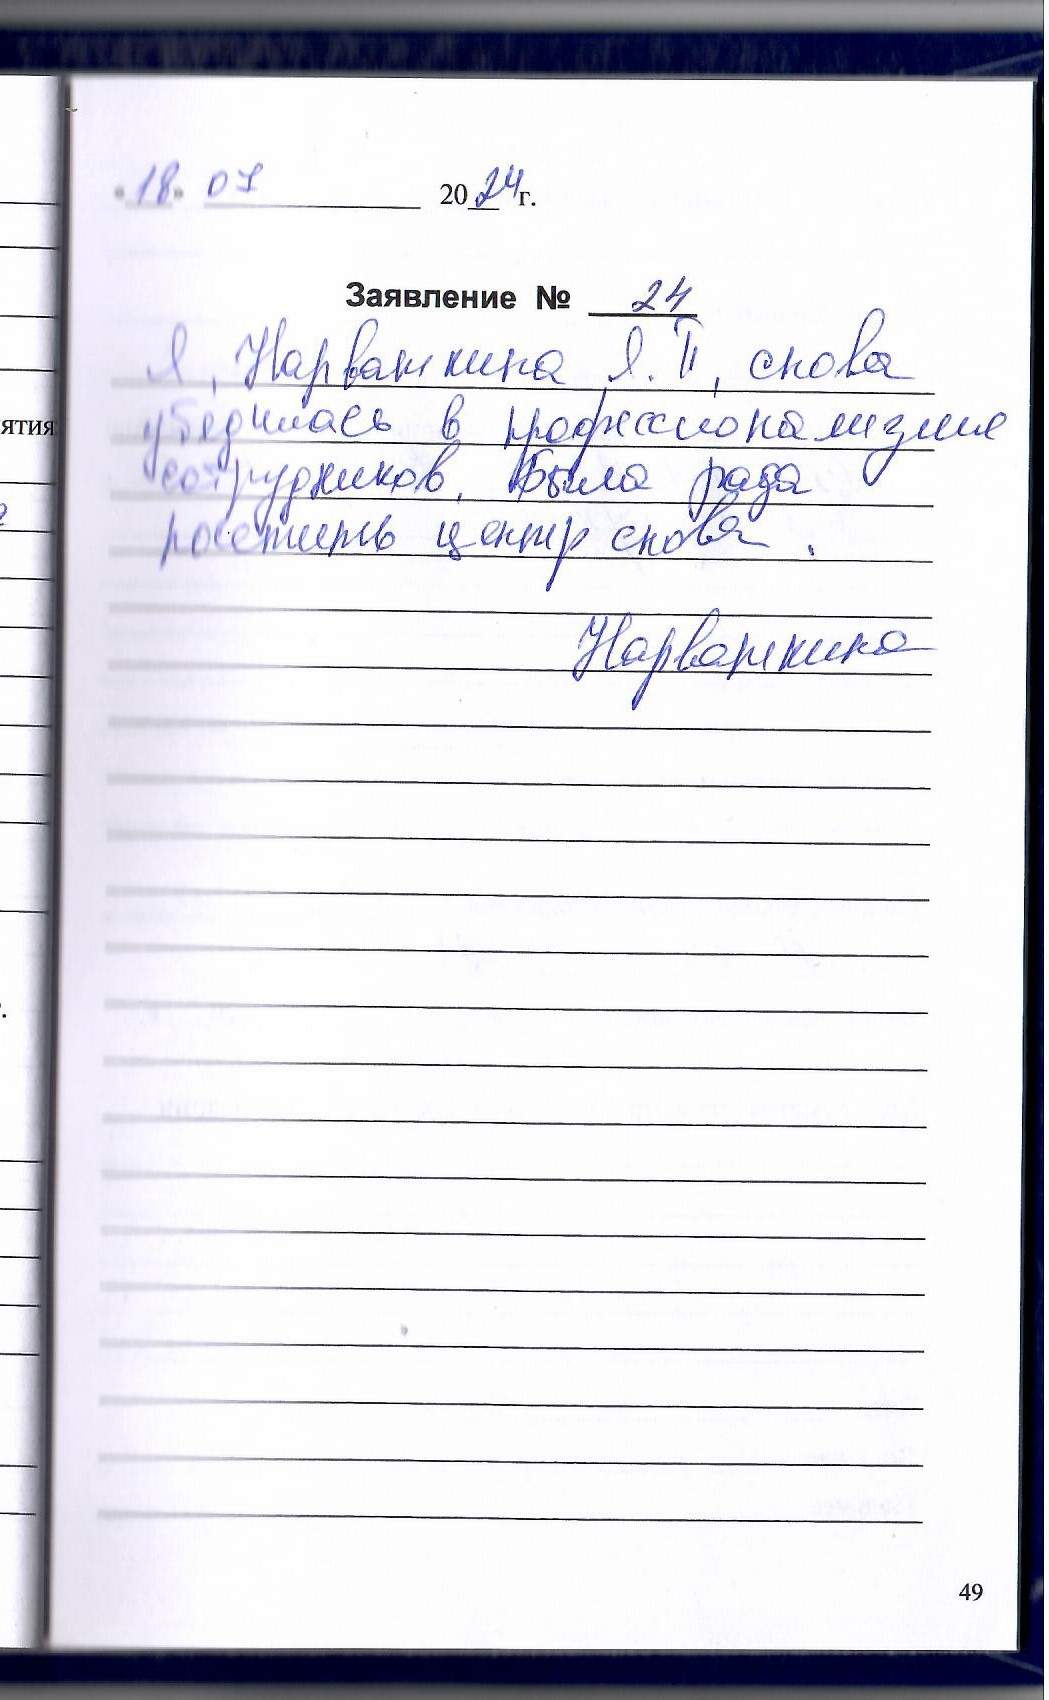 ятия
«18» 07 2024 г.
Заявление № 24
Я, Нарваткина Я. П, снова
убедилась в профессионализме
сотрудников. Была рада
посетить центр снова.
Нарваткина
49